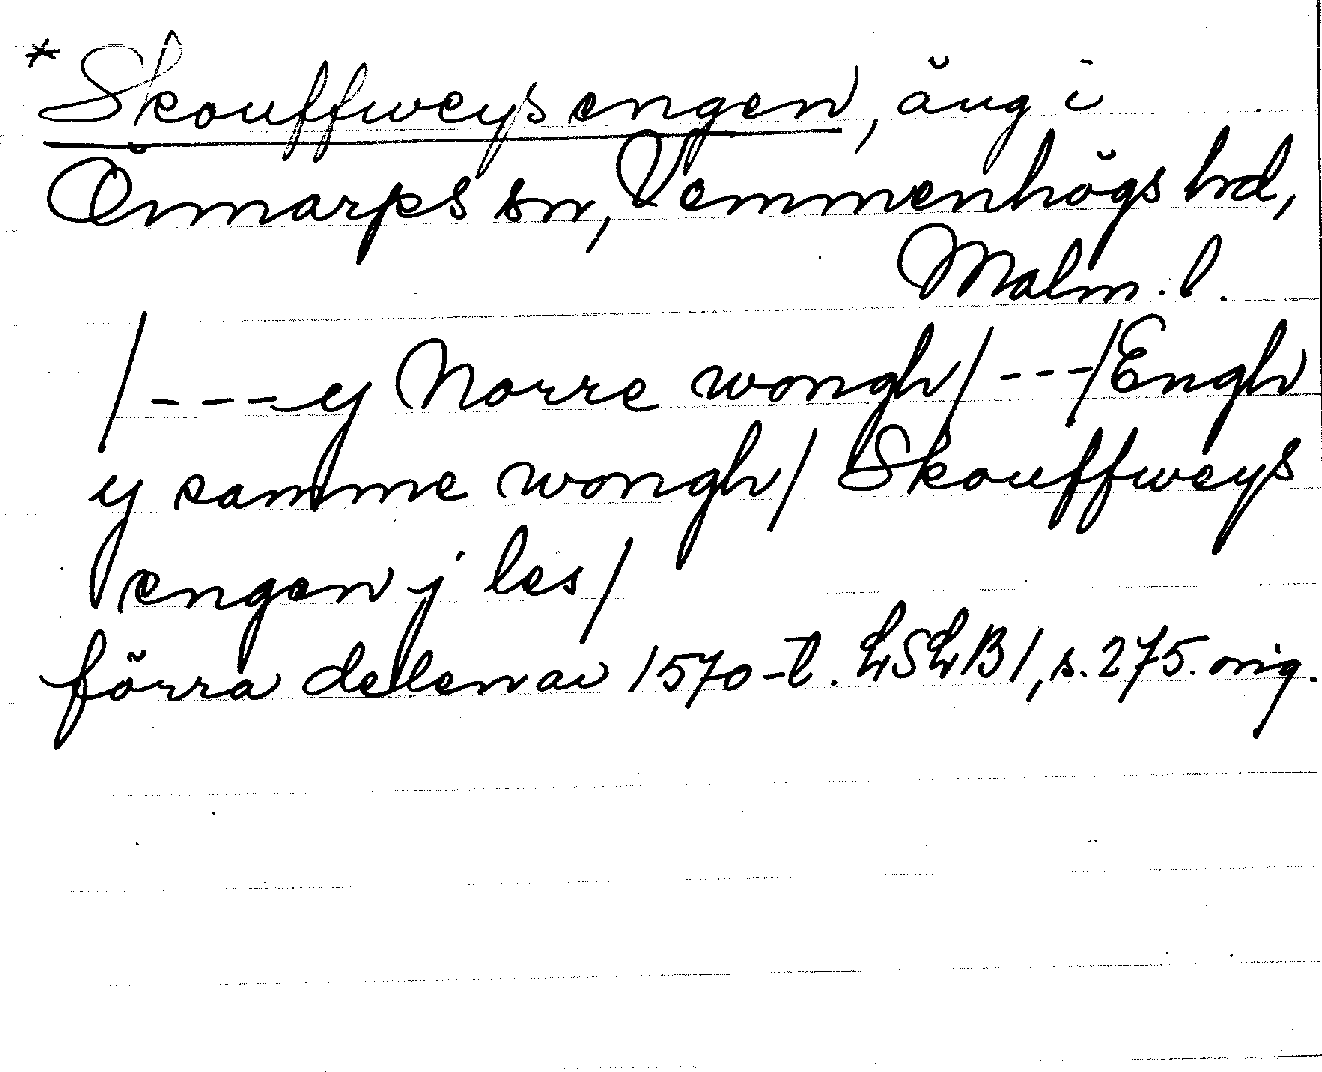 * Skouffweys engen, äng i
Önnarps sn, Vemmenhögs hd,
Malm. l.
/---y Norre wongh/---/Engh
y samme wongh/ Skouffweys
engen j les/
förra delen av 1570-t. LSLB1, s. 275. orig.